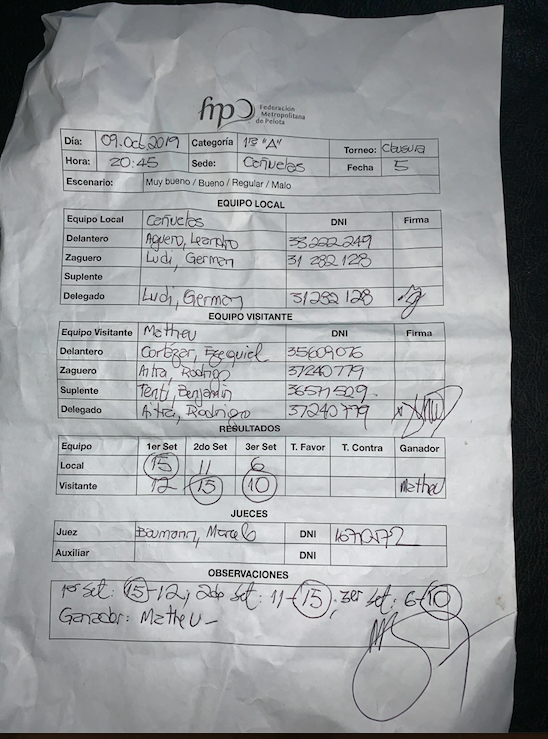 fmp
Federación
Metropolitana
de Pelota
Día: 09.Oct.2019 Categoría 1ra "A" Torneo: Clausura
Hora: 20:45 Sede: Cañuelas Fecha 5
Escenario: Muy bueno / Bueno / Regular / Malo
EQUIPO LOCAL
Equipo Local Cañuelas DNI Firma
Delantero Aguero, Leandro 33222249
Zaguero Ludi, German 31 282 128
Suplente
Delegado Ludi, German 31282 128
EQUIPO VISITANTE
Equipo Visitante Matheu DNI Firma
Delantero Cortázar, Ezequiel 35609076
Zaguero Aitra, Rodrigo 37240779
Suplente Tenti, Benjamin 36571529
Delegado Aitra, Rodrigo 37240779
RESULTADOS
Equipo 1er Set 2do Set 3er Set T. Favor T. Contra Ganador
Local 15 11 6
Visitante 12 15 10 Matheu
JUECES
Juez Baumann, Marcelo DNI
Auxiliar DNI
OBSERVACIONES
1er set: 15-12, 2do set: 11-15, 3er set: 6-10
Ganador: Matheu-